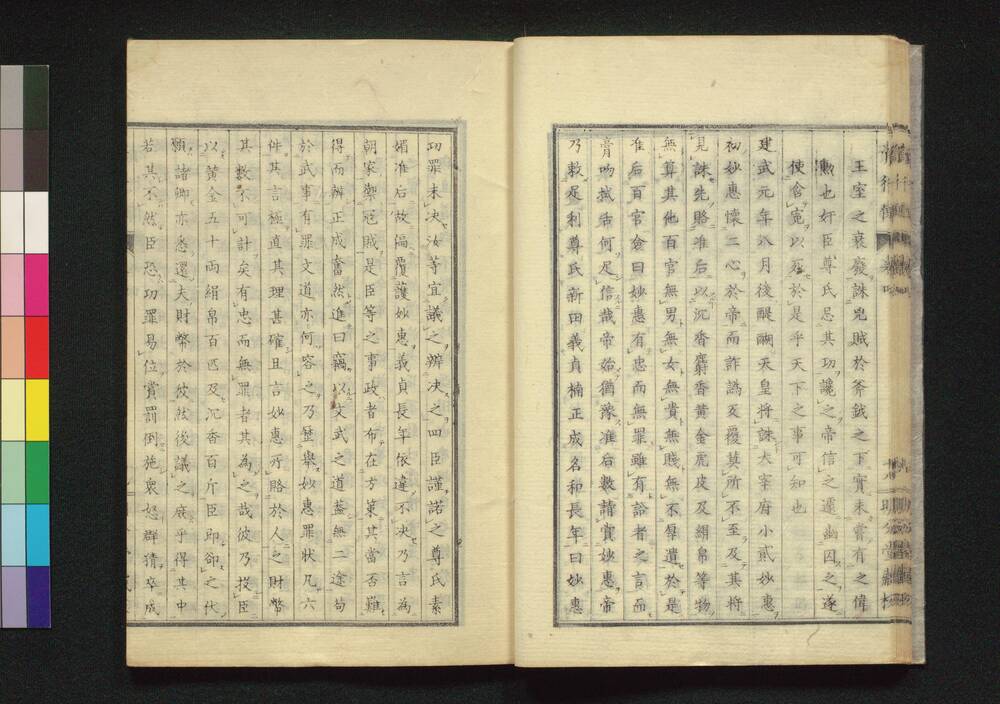 王室之衰廢誅兇賊於斧鉞之下實未嘗有之偉
勲也奸臣尊氏忌其功讒之帝信之遷幽囚之遂
使含冤以死於是乎天下之事可知也
建武元年八月後醍醐天皇將誅大宰府小貳妙惠
初妙惠懷二心於帝而詐譎反覆莫所不至及其將
見誅先賂准后以沉香麝香黄金虎皮及絹帛等物
無算其他百官無男無女無貴無賤無不厚遺於是
准后百官僉曰妙惠有忠而無罪雖有諮者之言而
膏吻拭舌何足信哉帝始猶豫准后數請賞妙惠帝
乃敕足利尊氏新田義貞楠正成名和長年曰妙惠
功罪未决汝等宜議之辨决之四臣謹諾之尊氏素
媚准后故偏覆護妙惠義貞長年依違不决乃言為
朝家禦冦賊是臣等之事政者布在方策其當否難
得而辨正成奮然進曰竊以文武之道蓋無二途苟
於武事有罪文道亦何容之乃歴舉妙惠罪狀凡六
件其言極直其理甚確且言妙惠所賂於人之財幣
其數不可計矣有忠而無罪者其為之哉彼乃投臣
以黄金五十兩絹帛百匹及沉香百斤臣即郤之伏
願諸卿亦悉還夫財幣於彼然後議之庶乎得其中
若其不然臣恐功罪易位賞罰倒施衆怒群猜卒成